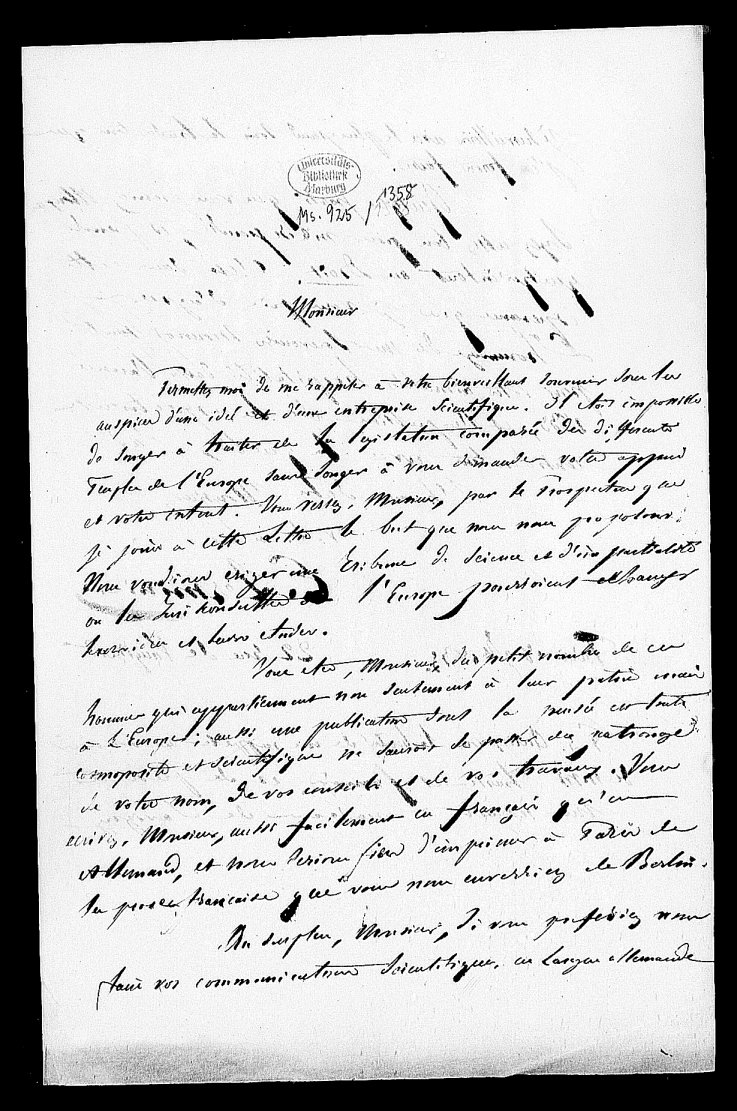 Universitäts-
Bibliothek
Marburg
Ms. 925 / 1358
Monsieur
Permettez moi de me rappeler à votre bienveillant souvenir sous les
auspices d'une idée et d'une entreprise scientifique. Il était impossible
de songer à traiter de la législation comparée des différents
Peuples de l'Europe sans songer à vous demander votre appui
et votre Vous verrez, Monsieur, par le Prospectus que
je joins à cette Lettre le but que nous nous proposons:
Nous voudrions eriger une Tribune de Science et d'impartialité
ou les Juris de l'Europe pourroient echanger
et leurs etudes.
Vous etes, Monsieur, du petit nombre de ces
hommes qui appartiennent non seulement à leur patrie mais
à l'Europe; aussi une publication dont la pensée est toute
cosmopolite et scientifique ne sauroit se passer du patronage
de votre nom, de vos conseils et de vos travaux. Vous
ecrivez, Monsieur, aussi facilement en français qu'en
Allemand, et nous serions fiers d'imprimer à Paris de
la prose française que vous nous enverriez de Berlin.
Au surplus, Monsieur, si vous préfériez nous
faire vos communications scientifiques, en Langue allemande